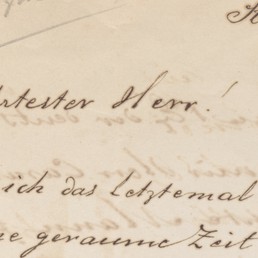 rtester Herr!
ich das letztemal
ne geraume Zeit